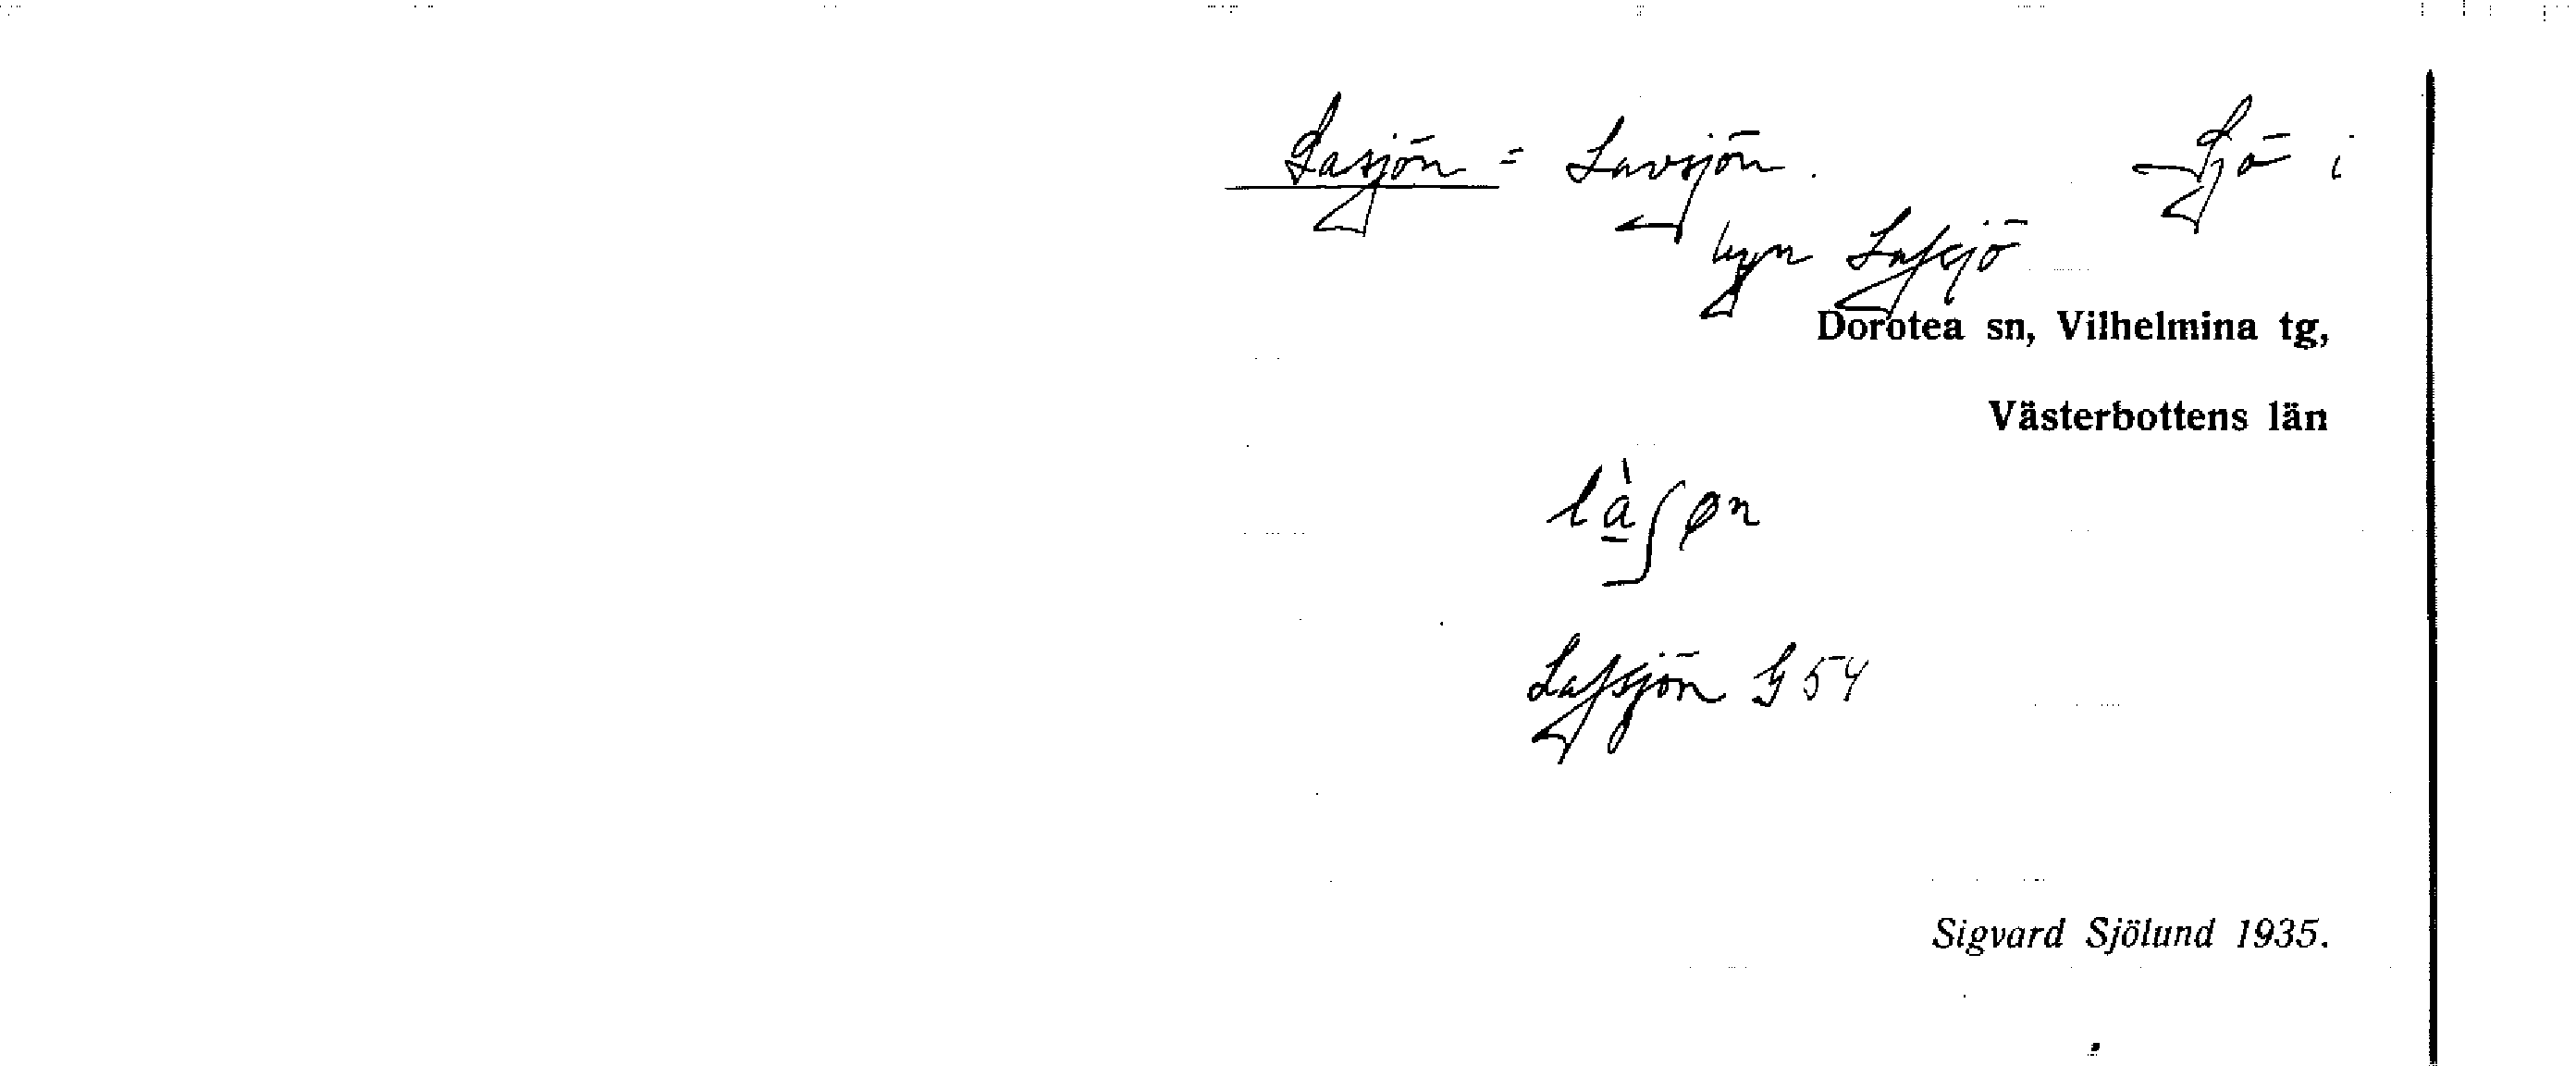 Lasjön = Lavsjön. Sjö i
byn Lafsjö
Dorotea sn, Vilhelmina tg,
Västerbottens län
là̱ʃøn
Lafsjön G 54
Sigvard Sjölund 1935.